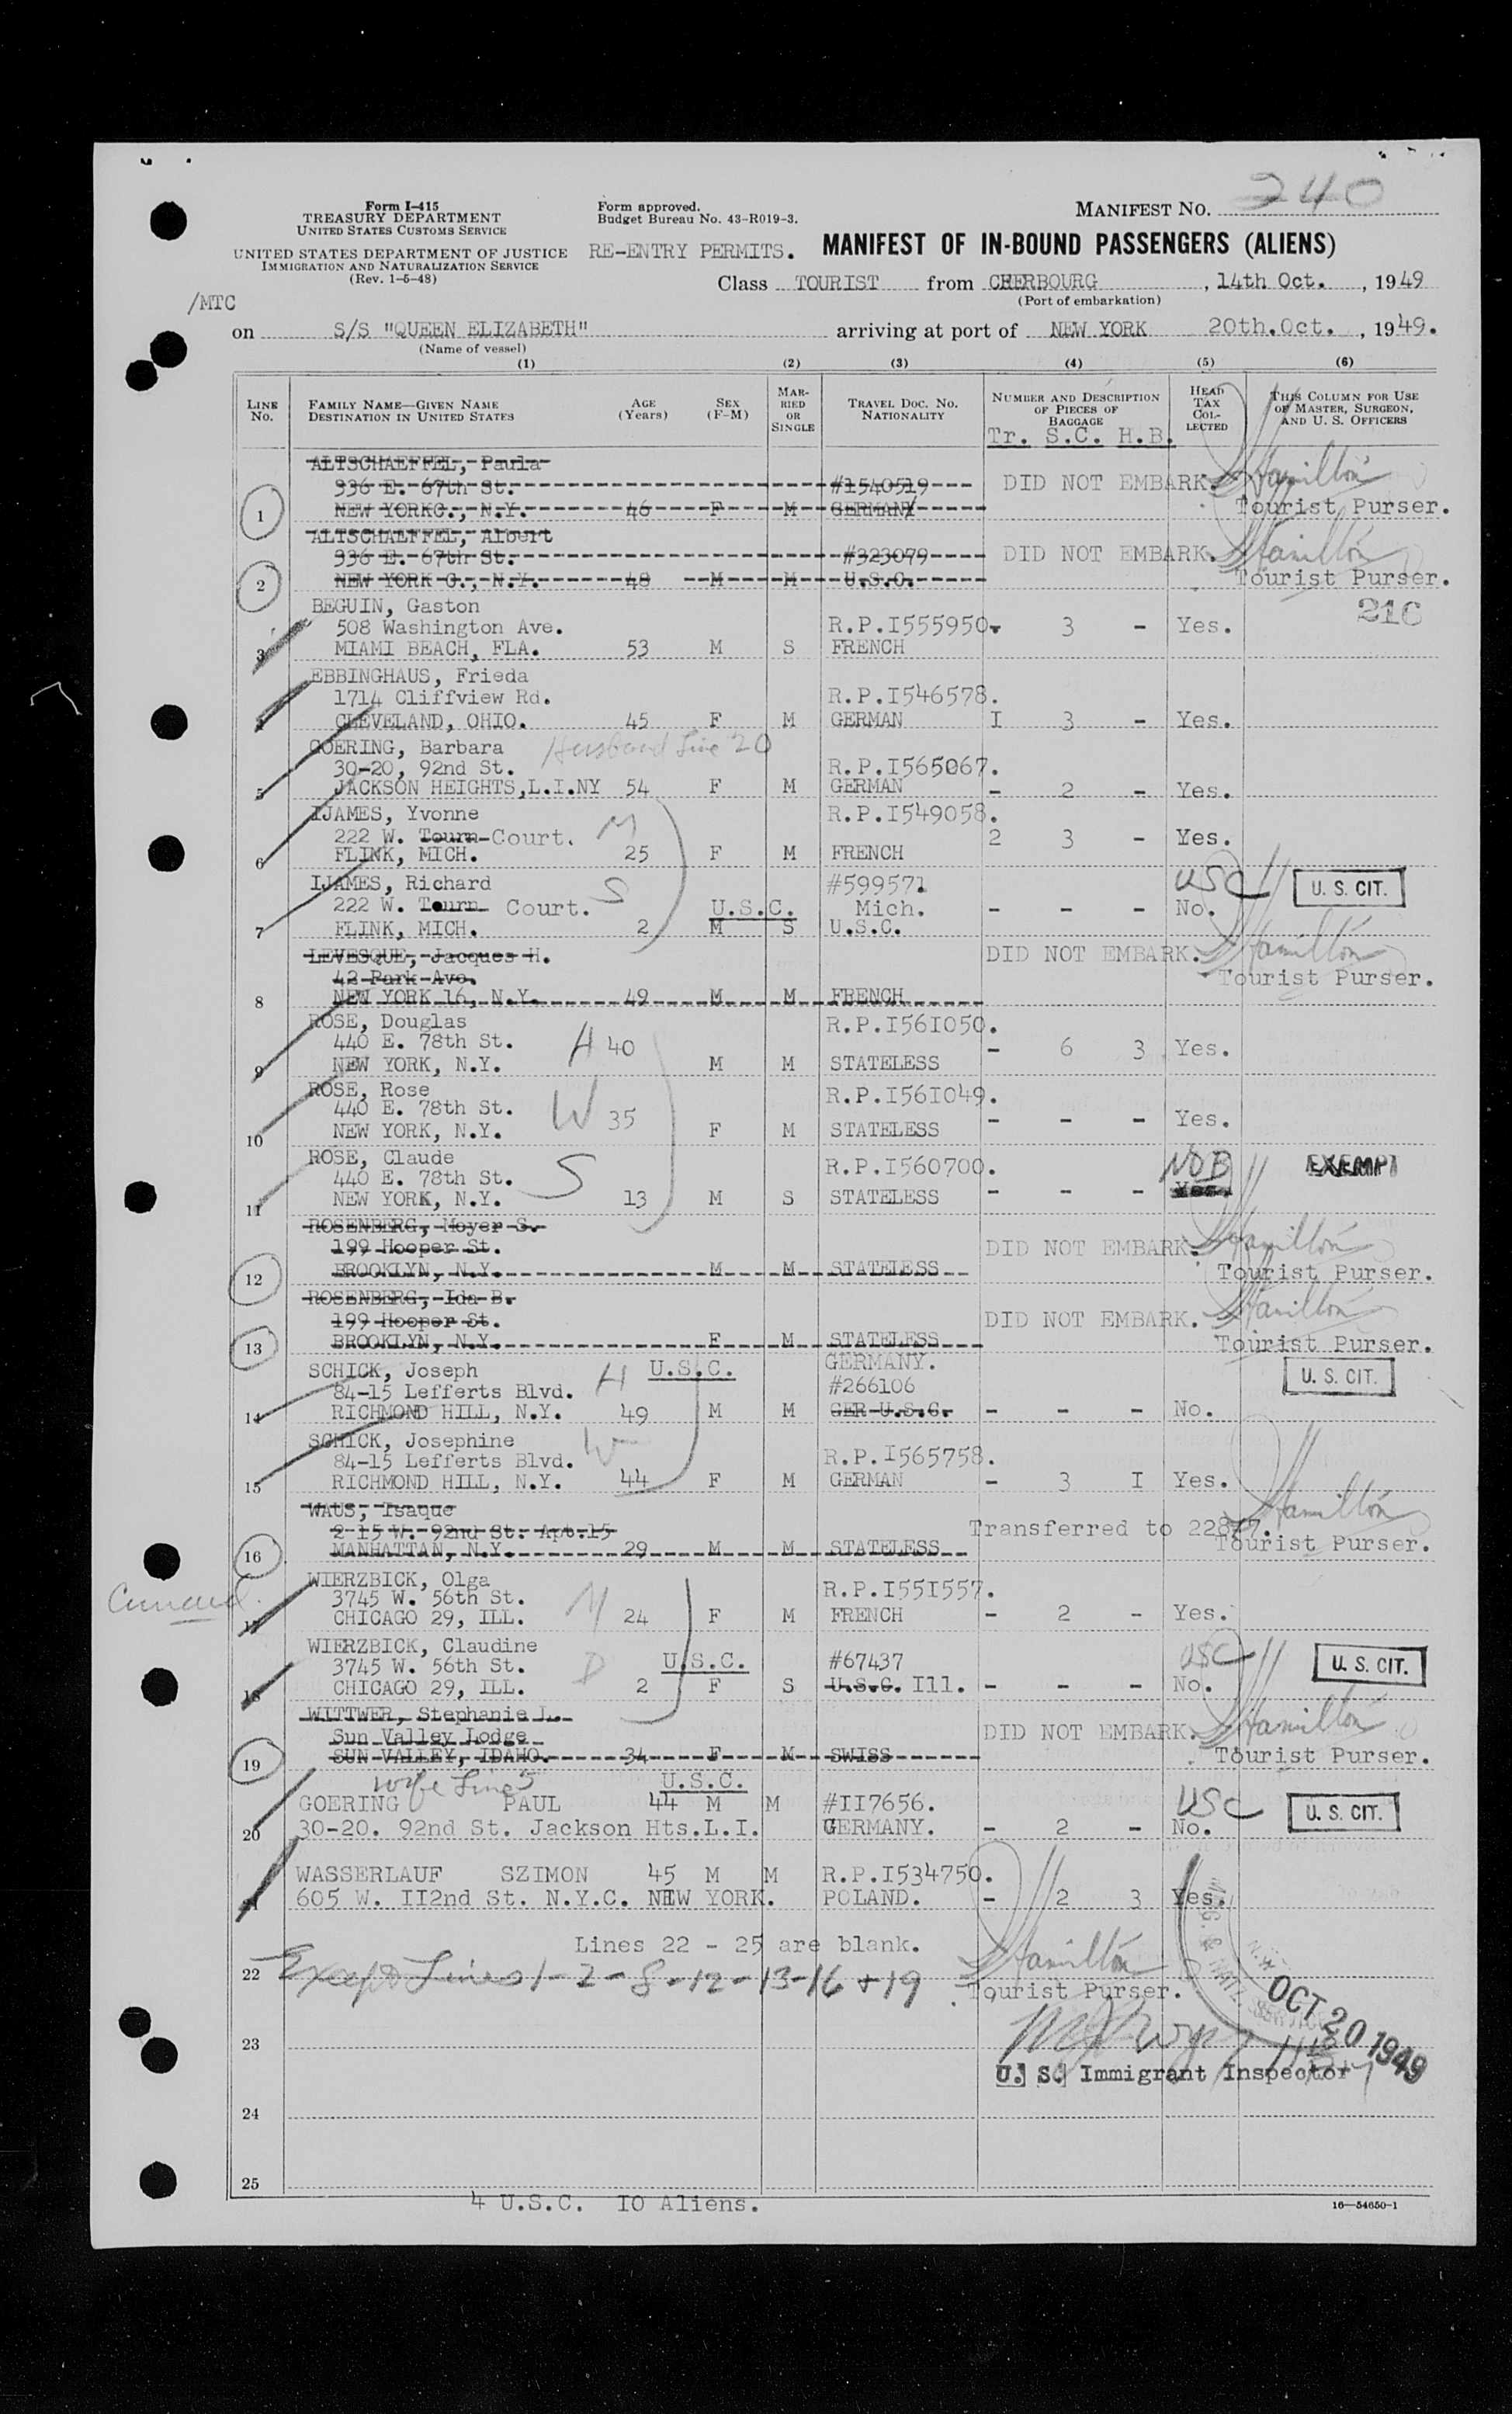 240
Form I-415
TREASURY DEPARTMENT
UNITED STATES CUSTOMS SERVICE
Form approved.
Budget Bureau No. 43-R019-3.
MANIFEST NO.
UNITED STATES DEPARTMENT OF JUSTICE
IMMIGRATION AND NATURALIZATION SERVICE
(Rev. 1-5-48)
RE-ENTRY PERMITS. MANIFEST OF IN-BOUND PASSENGERS (ALIENS)
/MTC
Class TOURIST from CHERBOURG, 14th Oct., 1949
(Port of embarkation)
on S/S "QUEEN ELIZABETH" arriving at port of NEW YORK 20th.Oct., 1949.
(Name of vessel)
(1) (2) (3) (4) (5) (6)
LINE No. FAMILY NAME—GIVEN NAME DESTINATION IN UNITED STATES AGE (Years) SEX (F-M) MARRIED OR SINGLE TRAVEL DOC. NO. NATIONALITY NUMBER AND DESCRIPTION OF PIECES OF BAGGAGE HEAD TAX COLLECTED THIS COLUMN FOR USE OF MASTER, SURGEON, AND U. S. OFFICERS
Tr. S.C. H.B.
ALTSCHAEFFEL, Paula
336 E. 67th St. #1540519 DID NOT EMBARK. Hamilton
1 NEW YORKC., N.Y. 46 F M GERMANY Tourist Purser.
ALTSCHAEFFEL, Albert
336 E. 67th St. #323079 DID NOT EMBARK. Hamilton
2 NEW YORK C., N.Y. 48 M M U.S.C. Tourist Purser.
BEGUIN, Gaston 21C
508 Washington Ave. R.P.I555950. 3 - Yes.
3 MIAMI BEACH, FLA. 53 M S FRENCH
EBBINGHAUS, Frieda
1714 Cliffview Rd. R.P.I546578.
4 CLEVELAND, OHIO. 45 F M GERMAN I 3 - Yes.
GOERING, Barbara Husband Line 20
30-20, 92nd St. R.P.I565067.
5 JACKSON HEIGHTS,L.I.NY 54 F M GERMAN - 2 - Yes.
IJAMES, Yvonne R.P.I549058.
222 W. Tourn Court. M 2 3 - Yes.
6 FLINK, MICH. 25 F M FRENCH
IJAMES, Richard S #599571 USC U. S. CIT.
222 W. Tourn Court. U.S.C. Mich. - - - No.
7 FLINK, MICH. 2 M S U.S.C.
LEVESQUE, Jacques H. DID NOT EMBARK. Hamilton
42 Park Ave. Tourist Purser.
8 NEW YORK 16, N.Y. 49 M M FRENCH
ROSE, Douglas R.P.I561050.
440 E. 78th St. H 40 - 6 3 Yes.
9 NEW YORK, N.Y. M M STATELESS
ROSE, Rose R.P.I561049.
440 E. 78th St. W 35 - - - Yes.
10 NEW YORK, N.Y. F M STATELESS
ROSE, Claude S R.P.I560700. NOB EXEMPT
440 E. 78th St. - - - Yes.
11 NEW YORK, N.Y. 13 M S STATELESS
ROSENBERG, Moyer S.
199 Hooper St. DID NOT EMBARK. Hamilton
12 BROOKLYN, N.Y. M M STATELESS Tourist Purser.
ROSENBERG, Ida B.
199 Hooper St. DID NOT EMBARK. Hamilton
13 BROOKLYN, N.Y. F M STATELESS Tourist Purser.
SCHICK, Joseph H U.S.C. GERMANY. U. S. CIT.
84-15 Lefferts Blvd. #266106
14 RICHMOND HILL, N.Y. 49 M M GER U.S.C. - - - No.
SCHICK, Josephine W
84-15 Lefferts Blvd. R.P.I565758.
15 RICHMOND HILL, N.Y. 44 F M GERMAN - 3 I Yes.
WAUS, Isaque Hamilton
2-15 W. 92nd St. Apt.15 Transferred to 22877.
16 MANHATTAN, N.Y. 29 M M STATELESS Tourist Purser.
WIERZBICK, Olga R.P.I551557.
Cunard. 3745 W. 56th St. M
17 CHICAGO 29, ILL. 24 F M FRENCH - 2 - Yes.
WIERZBICK, Claudine D #67437 USC U. S. CIT.
3745 W. 56th St. U.S.C.
18 CHICAGO 29, ILL. 2 F S U.S.C. Ill. - - - No.
WITTWER, Stephanie L. DID NOT EMBARK. Hamilton
Sun Valley Lodge
19 SUN VALLEY, IDAHO. 34 F M SWISS Tourist Purser.
wife Line 5 U.S.C.
GOERING PAUL 44 M M #II7656. USC U. S. CIT.
20 30-20. 92nd St. Jackson Hts.L.I. GERMANY. - 2 - No.
WASSERLAUF SZIMON 45 M M R.P.I534750.
21 605 W. II2nd St. N.Y.C. NEW YORK. POLAND. - 2 3 Yes.
Lines 22 - 25 are blank. Hamilton
22 Except Lines 1-2-8-12-13-16 + 19 Tourist Purser.
OCT 20 1949
23
U. S. Immigrant Inspector
24
25
4 U.S.C. IO Aliens.
16—54650-1